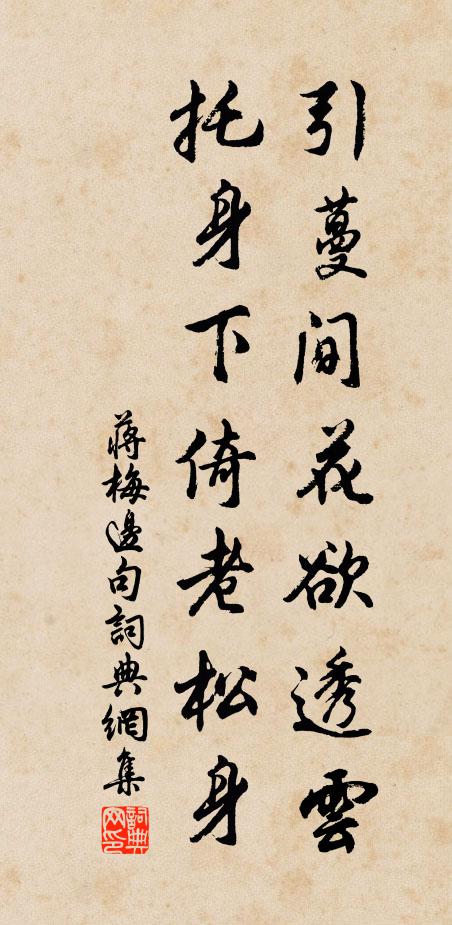 引蔓間花欲透雲
托身下倚老松身
蔣梅邊句詞典網集
詞典網印